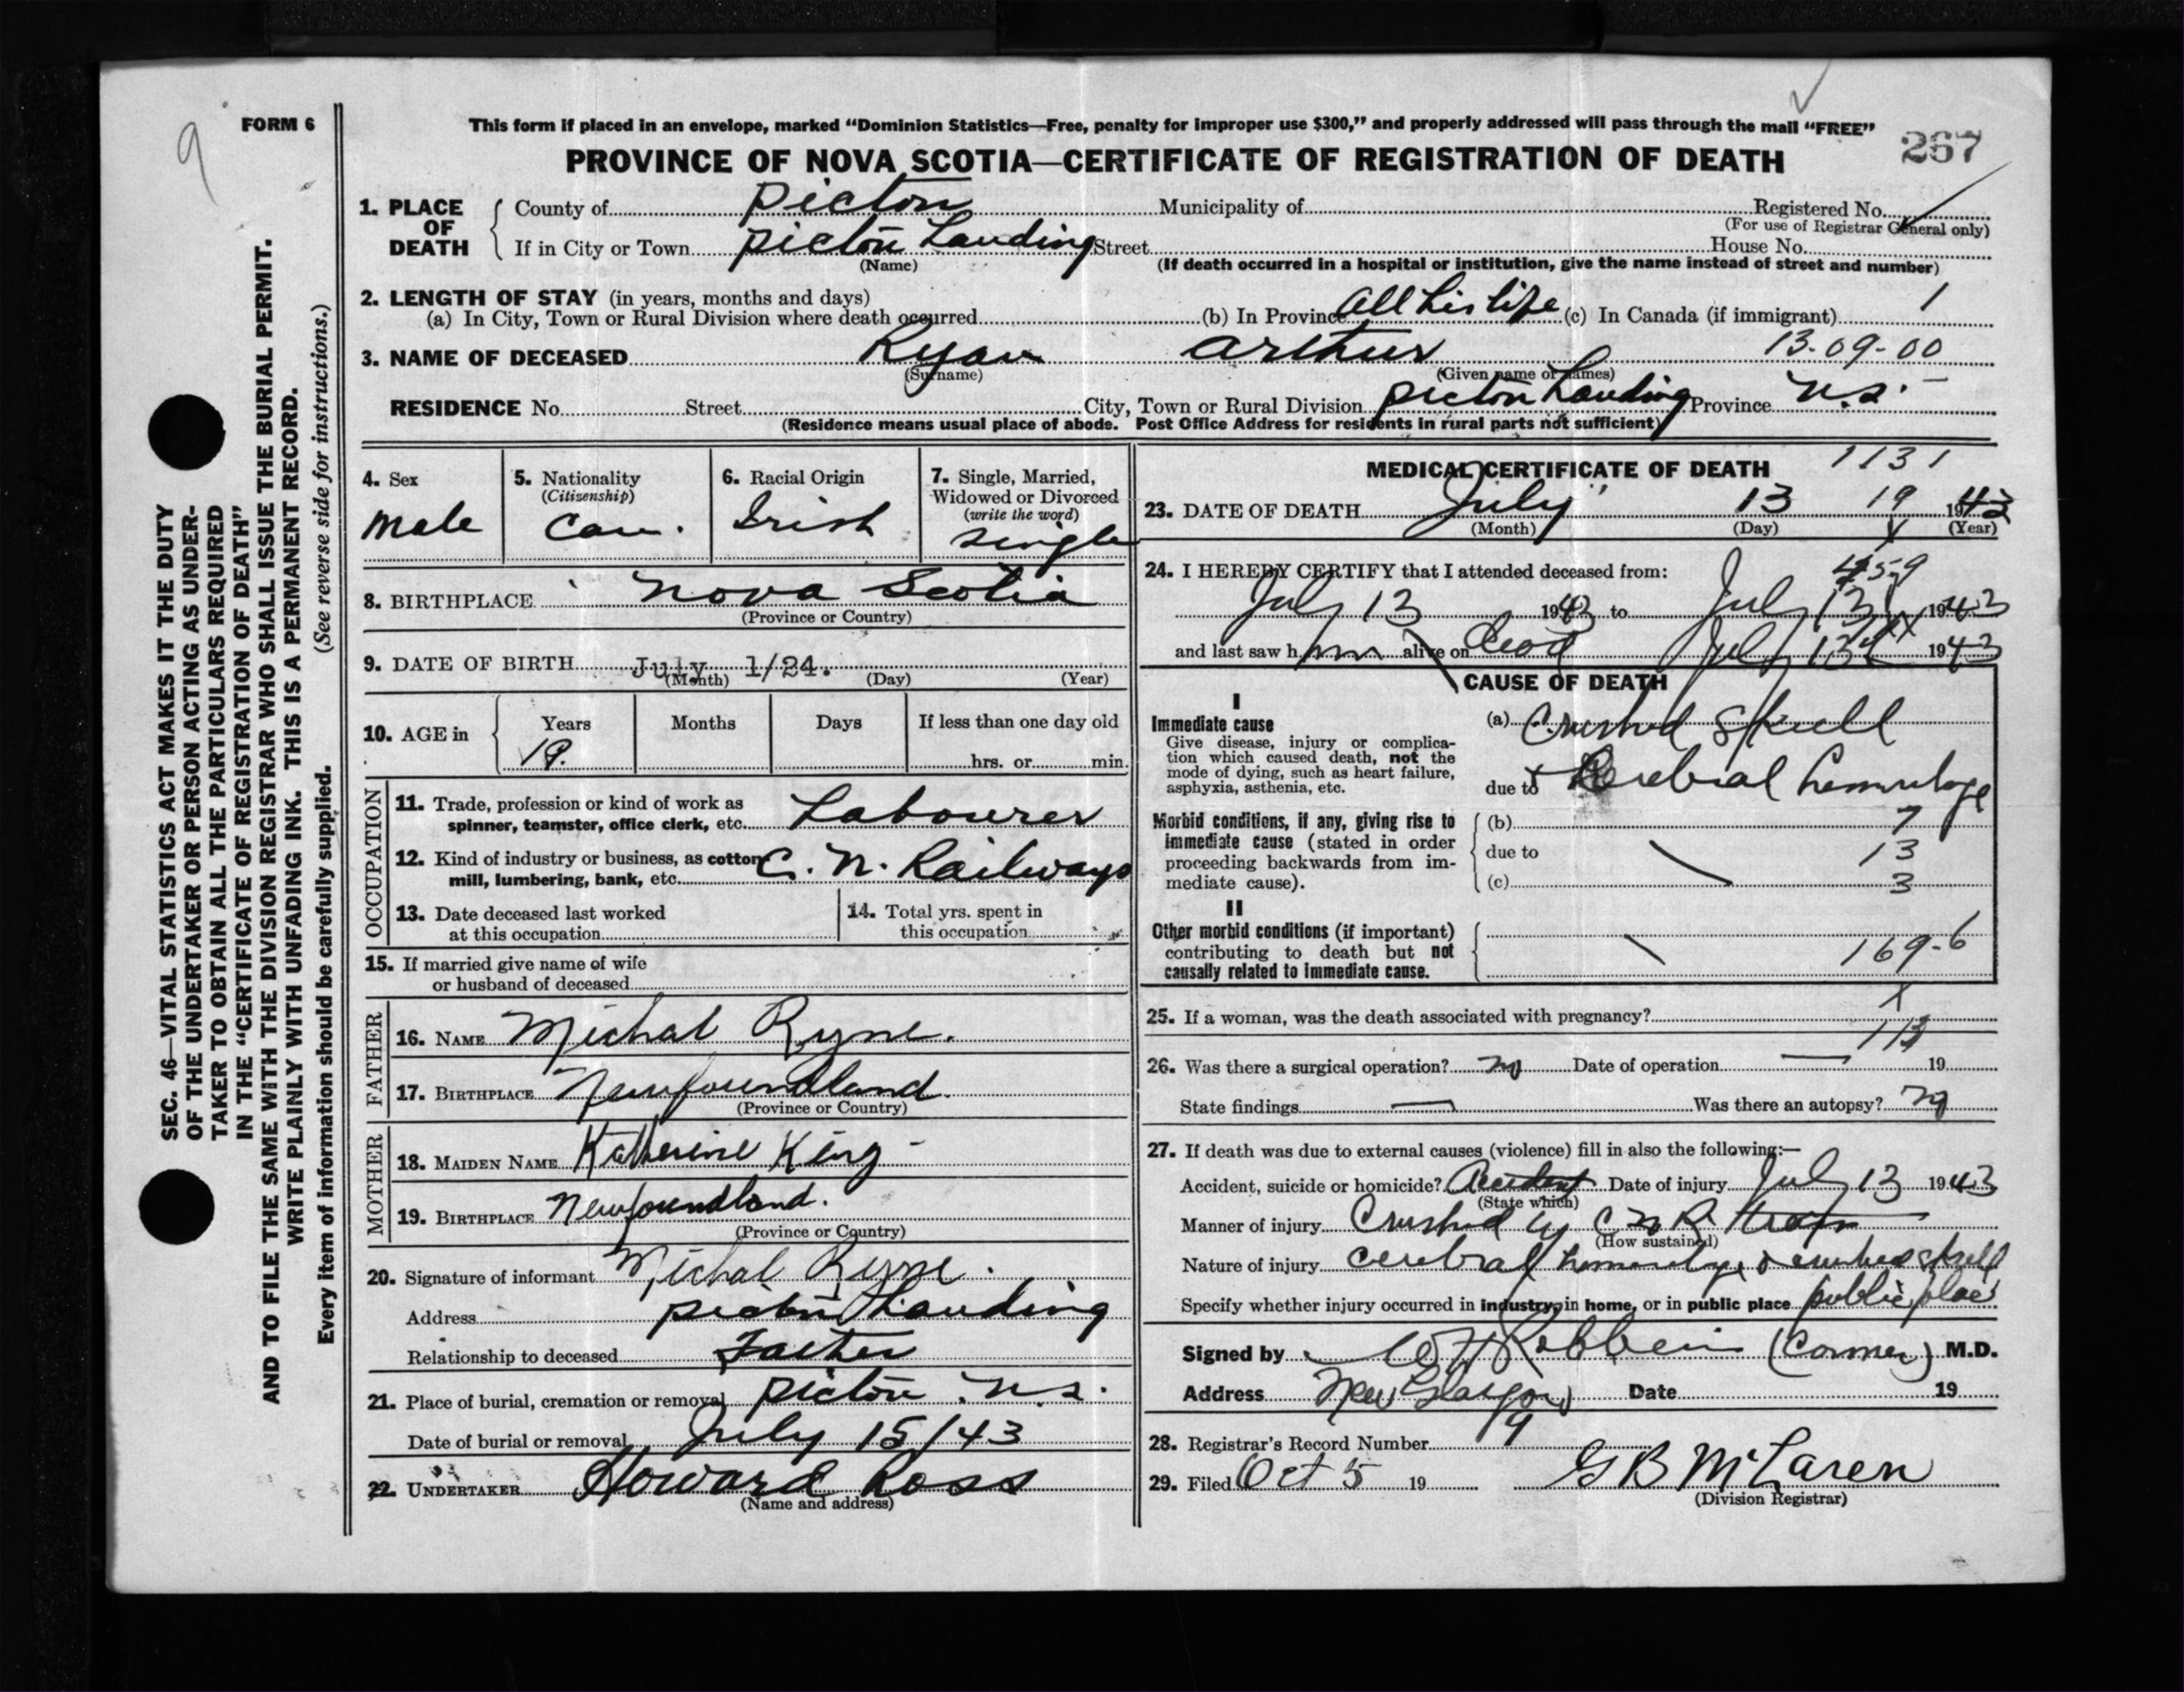 9
FORM 6
This form if placed in an envelope, marked “Dominion Statistics—Free, penalty for improper use $300,” and properly addressed will pass through the mail “FREE”
PROVINCE OF NOVA SCOTIA—CERTIFICATE OF REGISTRATION OF DEATH
267
1. PLACE OF DEATH
County of Picton Municipality of Registered No.
(For use of Registrar General only)
If in City or Town Picton Landing Street House No.
(Name) (If death occurred in a hospital or institution, give the name instead of street and number)
2. LENGTH OF STAY (in years, months and days)
(a) In City, Town or Rural Division where death occurred (b) In Province All his life (c) In Canada (if immigrant) 1
3. NAME OF DECEASED Ryan Arthur 13-09-00
(Surname) (Given name or names)
RESIDENCE No. Street City, Town or Rural Division Picton Landing Province N.S.
(Residence means usual place of abode. Post Office Address for residents in rural parts not sufficient)
4. Sex
Male
5. Nationality
(Citizenship)
Can.
6. Racial Origin
Irish
7. Single, Married,
Widowed or Divorced
(write the word)
Single
8. BIRTHPLACE Nova Scotia
(Province or Country)
9. DATE OF BIRTH July 1/24.
(Month) (Day) (Year)
10. AGE in
Years Months Days If less than one day old
19. hrs. or min.
OCCUPATION
11. Trade, profession or kind of work as
spinner, teamster, office clerk, etc. Labourer
12. Kind of industry or business, as cotton
mill, lumbering, bank, etc. C. N. Railways
13. Date deceased last worked
at this occupation
14. Total yrs. spent in
this occupation
15. If married give name of wife
or husband of deceased
FATHER
16. NAME Michal Ryne.
17. BIRTHPLACE Newfoundland.
(Province or Country)
MOTHER
18. MAIDEN NAME Katherine King
19. BIRTHPLACE Newfoundland.
(Province or Country)
20. Signature of informant Michal Ryne.
Address Picton Landing
Relationship to deceased Father
21. Place of burial, cremation or removal Picton N.S.
Date of burial or removal July 15/43
22. UNDERTAKER Howard Ross
(Name and address)
MEDICAL CERTIFICATE OF DEATH 1131
23. DATE OF DEATH July 13 19 1943
(Month) (Day) (Year)
24. I HEREBY CERTIFY that I attended deceased from:
July 13 1943 to July 13 1943
and last saw him alive on Dead July 13 1943
CAUSE OF DEATH
I
Immediate cause
Give disease, injury or complica-
tion which caused death, not the
mode of dying, such as heart failure,
asphyxia, asthenia, etc.
(a) Crushed Skull
due to Cerebral hemorrhage
Morbid conditions, if any, giving rise to
immediate cause (stated in order
proceeding backwards from im-
mediate cause).
(b) 7
due to 13
(c) 3
II
Other morbid conditions (if important)
contributing to death but not
causally related to immediate cause.
169-6
25. If a woman, was the death associated with pregnancy?
113
26. Was there a surgical operation? no Date of operation — 19
State findings — Was there an autopsy? no
27. If death was due to external causes (violence) fill in also the following:—
Accident, suicide or homicide? Accident Date of injury July 13 1943
(State which)
Manner of injury Crushed by C N R train
(How sustained)
Nature of injury cerebral hemorrhage & crushed skull
Specify whether injury occurred in industry, in home, or in public place public place
Signed by (Coroner) M.D.
Address New Glasgow Date 19
28. Registrar's Record Number 9
29. Filed Oct 5 19 G B McLaren
(Division Registrar)
SEC. 46—VITAL STATISTICS ACT MAKES IT THE DUTY
OF THE UNDERTAKER OR PERSON ACTING AS UNDER-
TAKER TO OBTAIN ALL THE PARTICULARS REQUIRED
IN THE “CERTIFICATE OF REGISTRATION OF DEATH”
AND TO FILE THE SAME WITH THE DIVISION REGISTRAR WHO SHALL ISSUE THE BURIAL PERMIT.
WRITE PLAINLY WITH UNFADING INK. THIS IS A PERMANENT RECORD.
Every item of information should be carefully supplied. (See reverse side for instructions.)